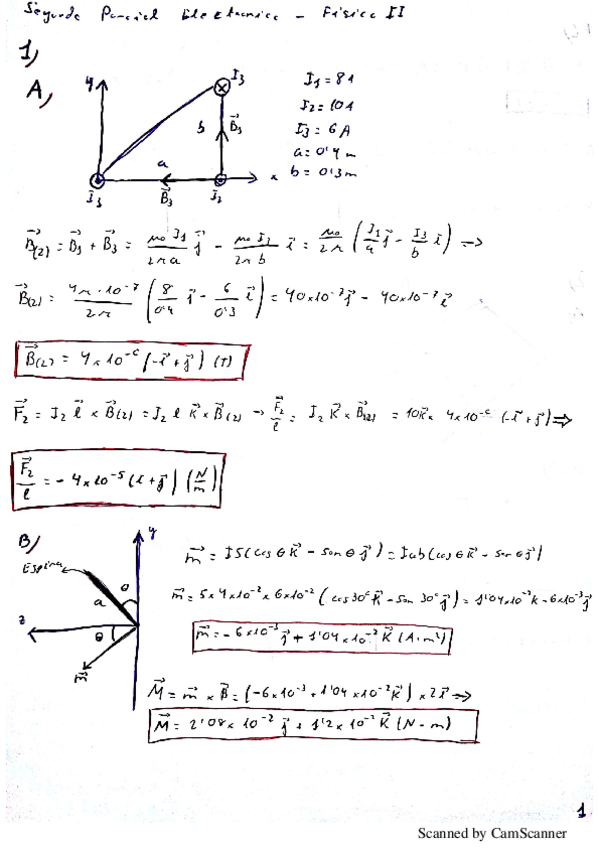 Segundo Parcial Electronica - Física II
1)
A)
y
I3
I1 = 8A
I2 = 10A
I3 = 6A
a = 0'4 m
b = 0'3 m
b
B⃗3
a
x
I3
B⃗3
I2
B⃗(2) = B⃗1 + B⃗3 = μ0 I1/2πa j⃗ - μ0 I3/2πb i⃗ = μ0/2π (I1/a j⃗ - I3/b i⃗) ⟹
B⃗(2) = 4π·10^-7/2π (8/0'4 j⃗ - 6/0'3 i⃗) = 40×10^-7 j⃗ - 40×10^-7 i⃗
B⃗(2) = 4×10^-6 (-i⃗ + j⃗) (T)
F⃗2 = I2 l⃗ × B⃗(2) = I2 l k⃗ × B⃗(2) → F⃗2/l = I2 k⃗ × B⃗(2) = 10k⃗ × 4×10^-6 (-i⃗ + j⃗) ⟹
F⃗2/l = -4×10^-5 (i + j⃗) (N/m)
B)
y
Espira
a
θ
z
θ
m⃗
m⃗ = IS(cos θ k⃗ - sen θ j⃗) = Iab(cos θ k⃗ - sen θ j⃗)
m⃗ = 5×4×10^-2×6×10^-2 (cos30° k⃗ - sen 30° j⃗) = 1'04×10^-2 k - 6×10^-3 j⃗
m⃗ = -6×10^-3 j⃗ + 1'04×10^-2 k⃗ (A·m²)
M⃗ = m⃗ × B⃗ = (-6×10^-3 + 1'04×10^-2 k⃗) × 2i⃗ ⟹
M⃗ = 2'08×10^-2 j⃗ + 1'2×10^-2 k⃗ (N-m)
1
Scanned by CamScanner